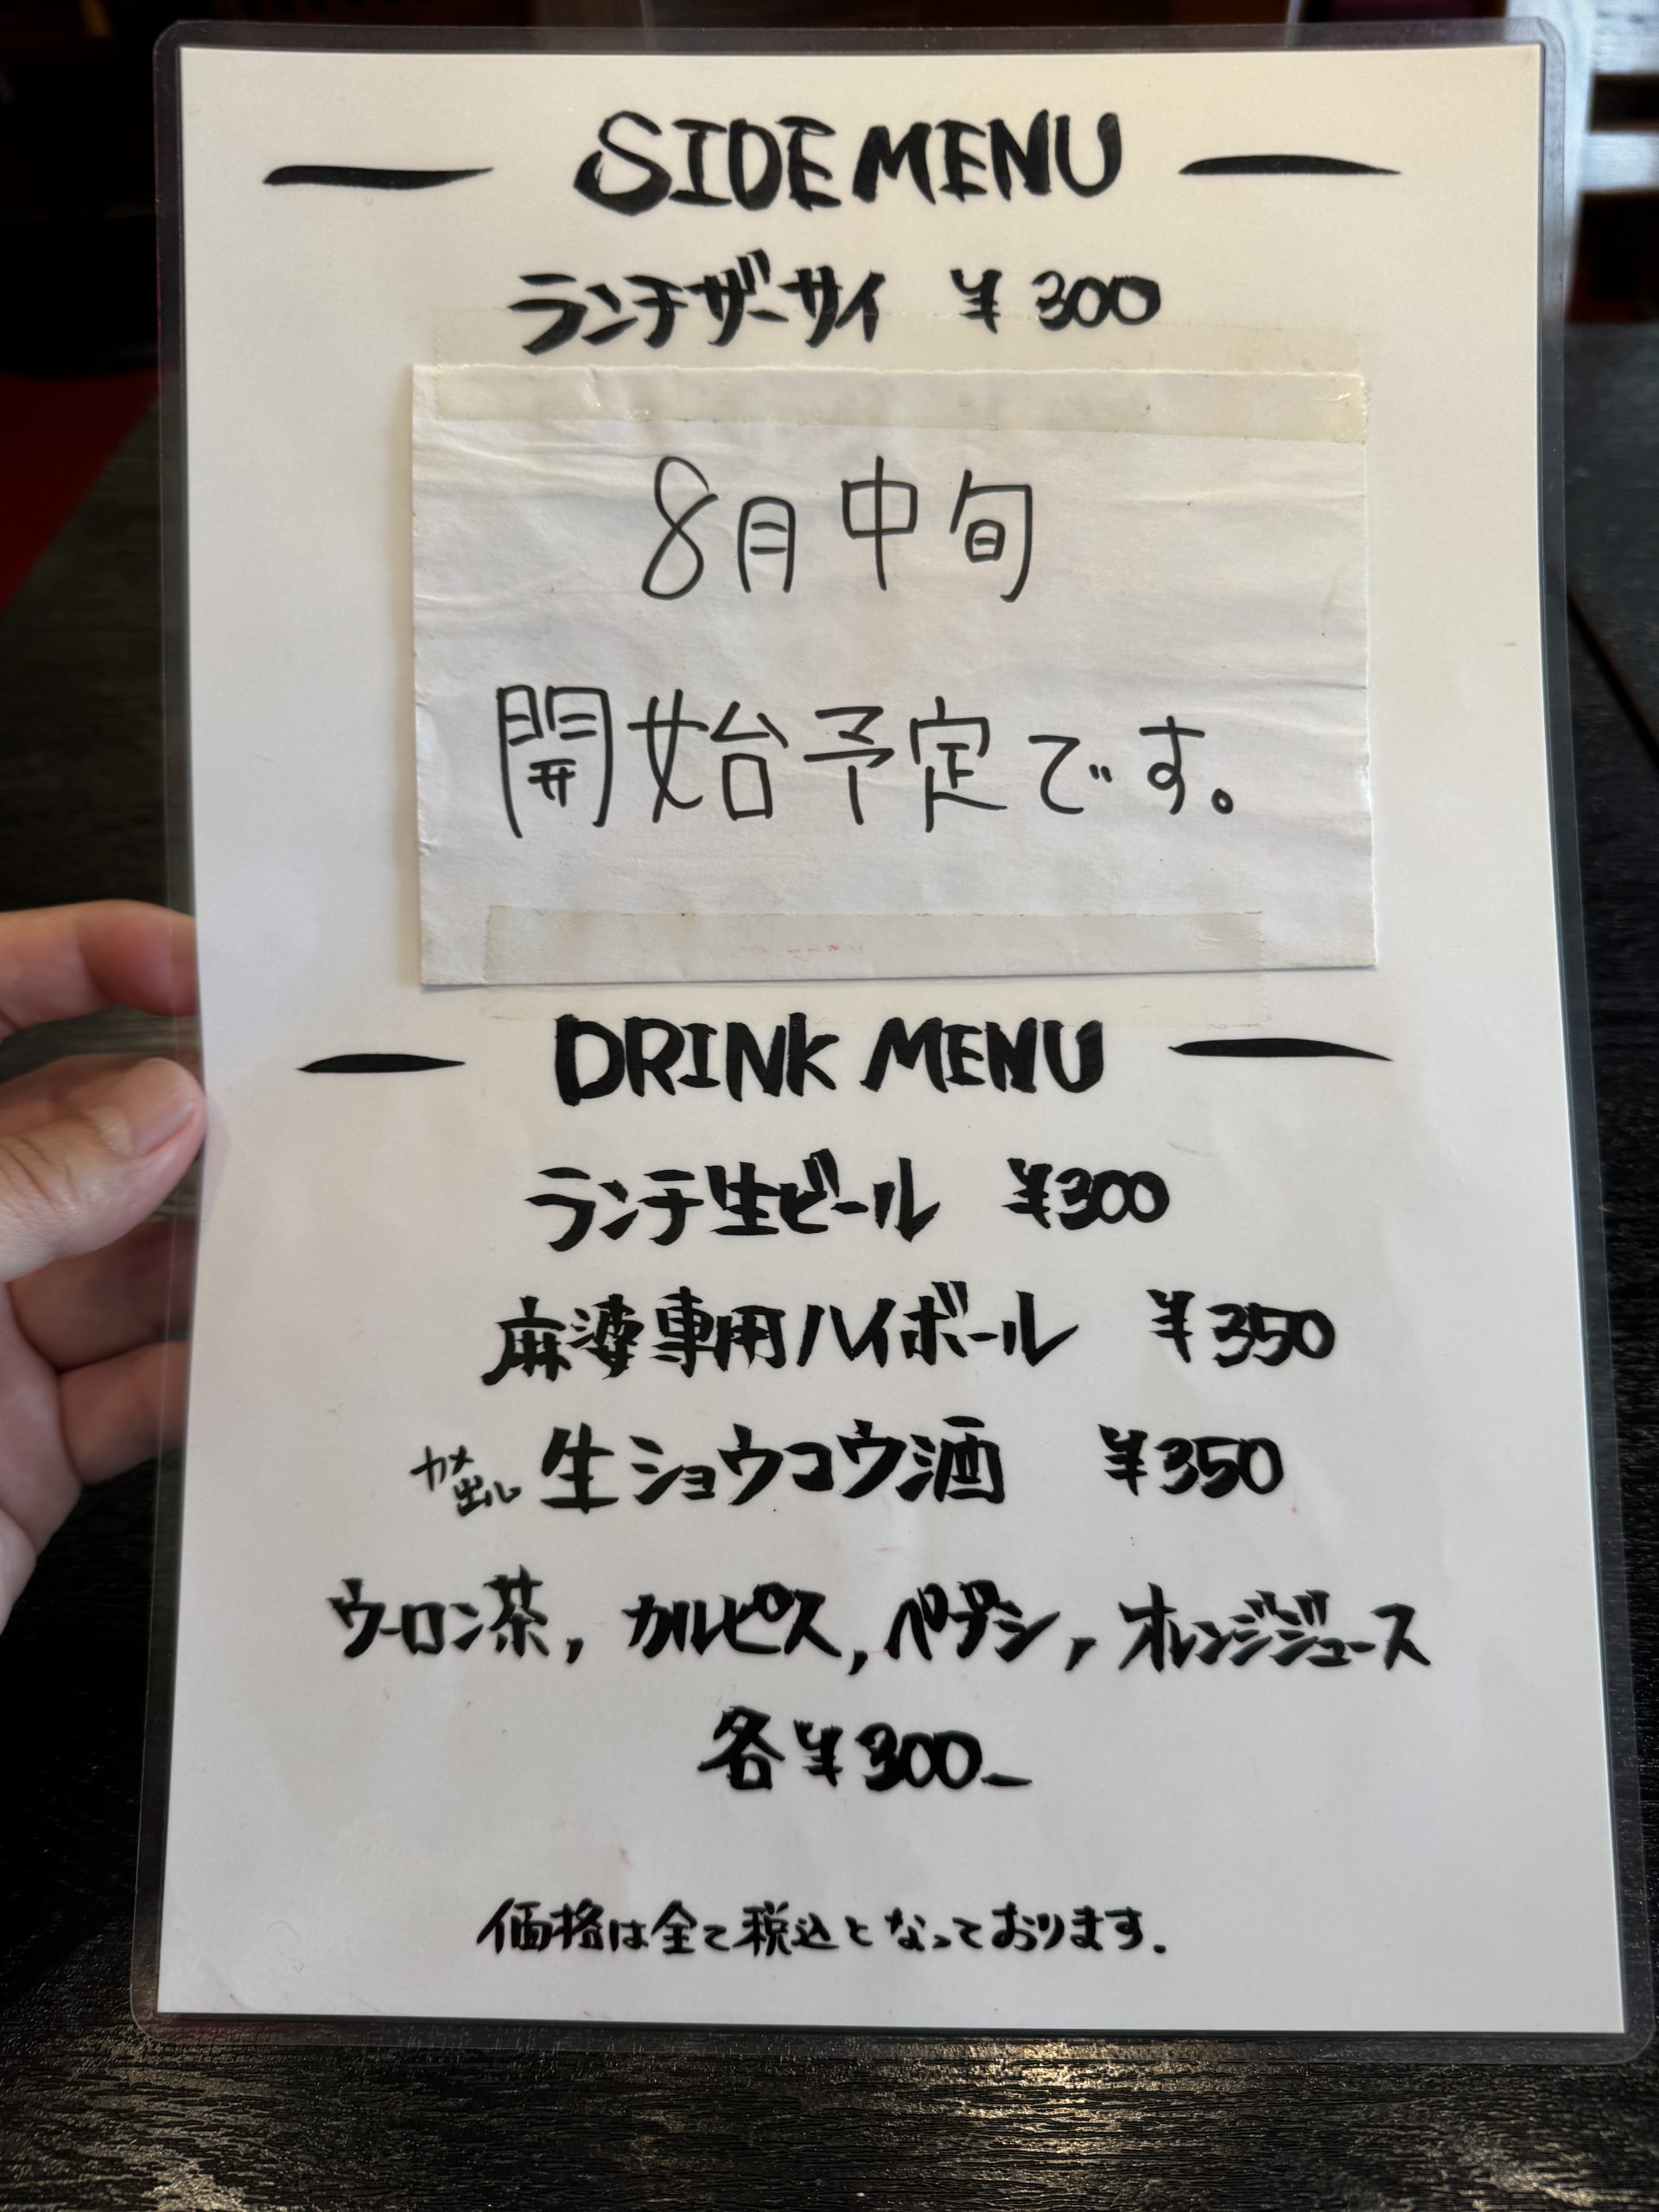 SIDE MENU
ランチザーサイ ¥300
8月中旬
開始予定です。
DRINK MENU
ランチ生ビール ¥300
麻婆専用ハイボール ¥350
カメ出し 生ショウコウ酒 ¥350
ウーロン茶, カルピス, ペプシ, オレンジジュース
各¥300_
価格は全て税込となっております.